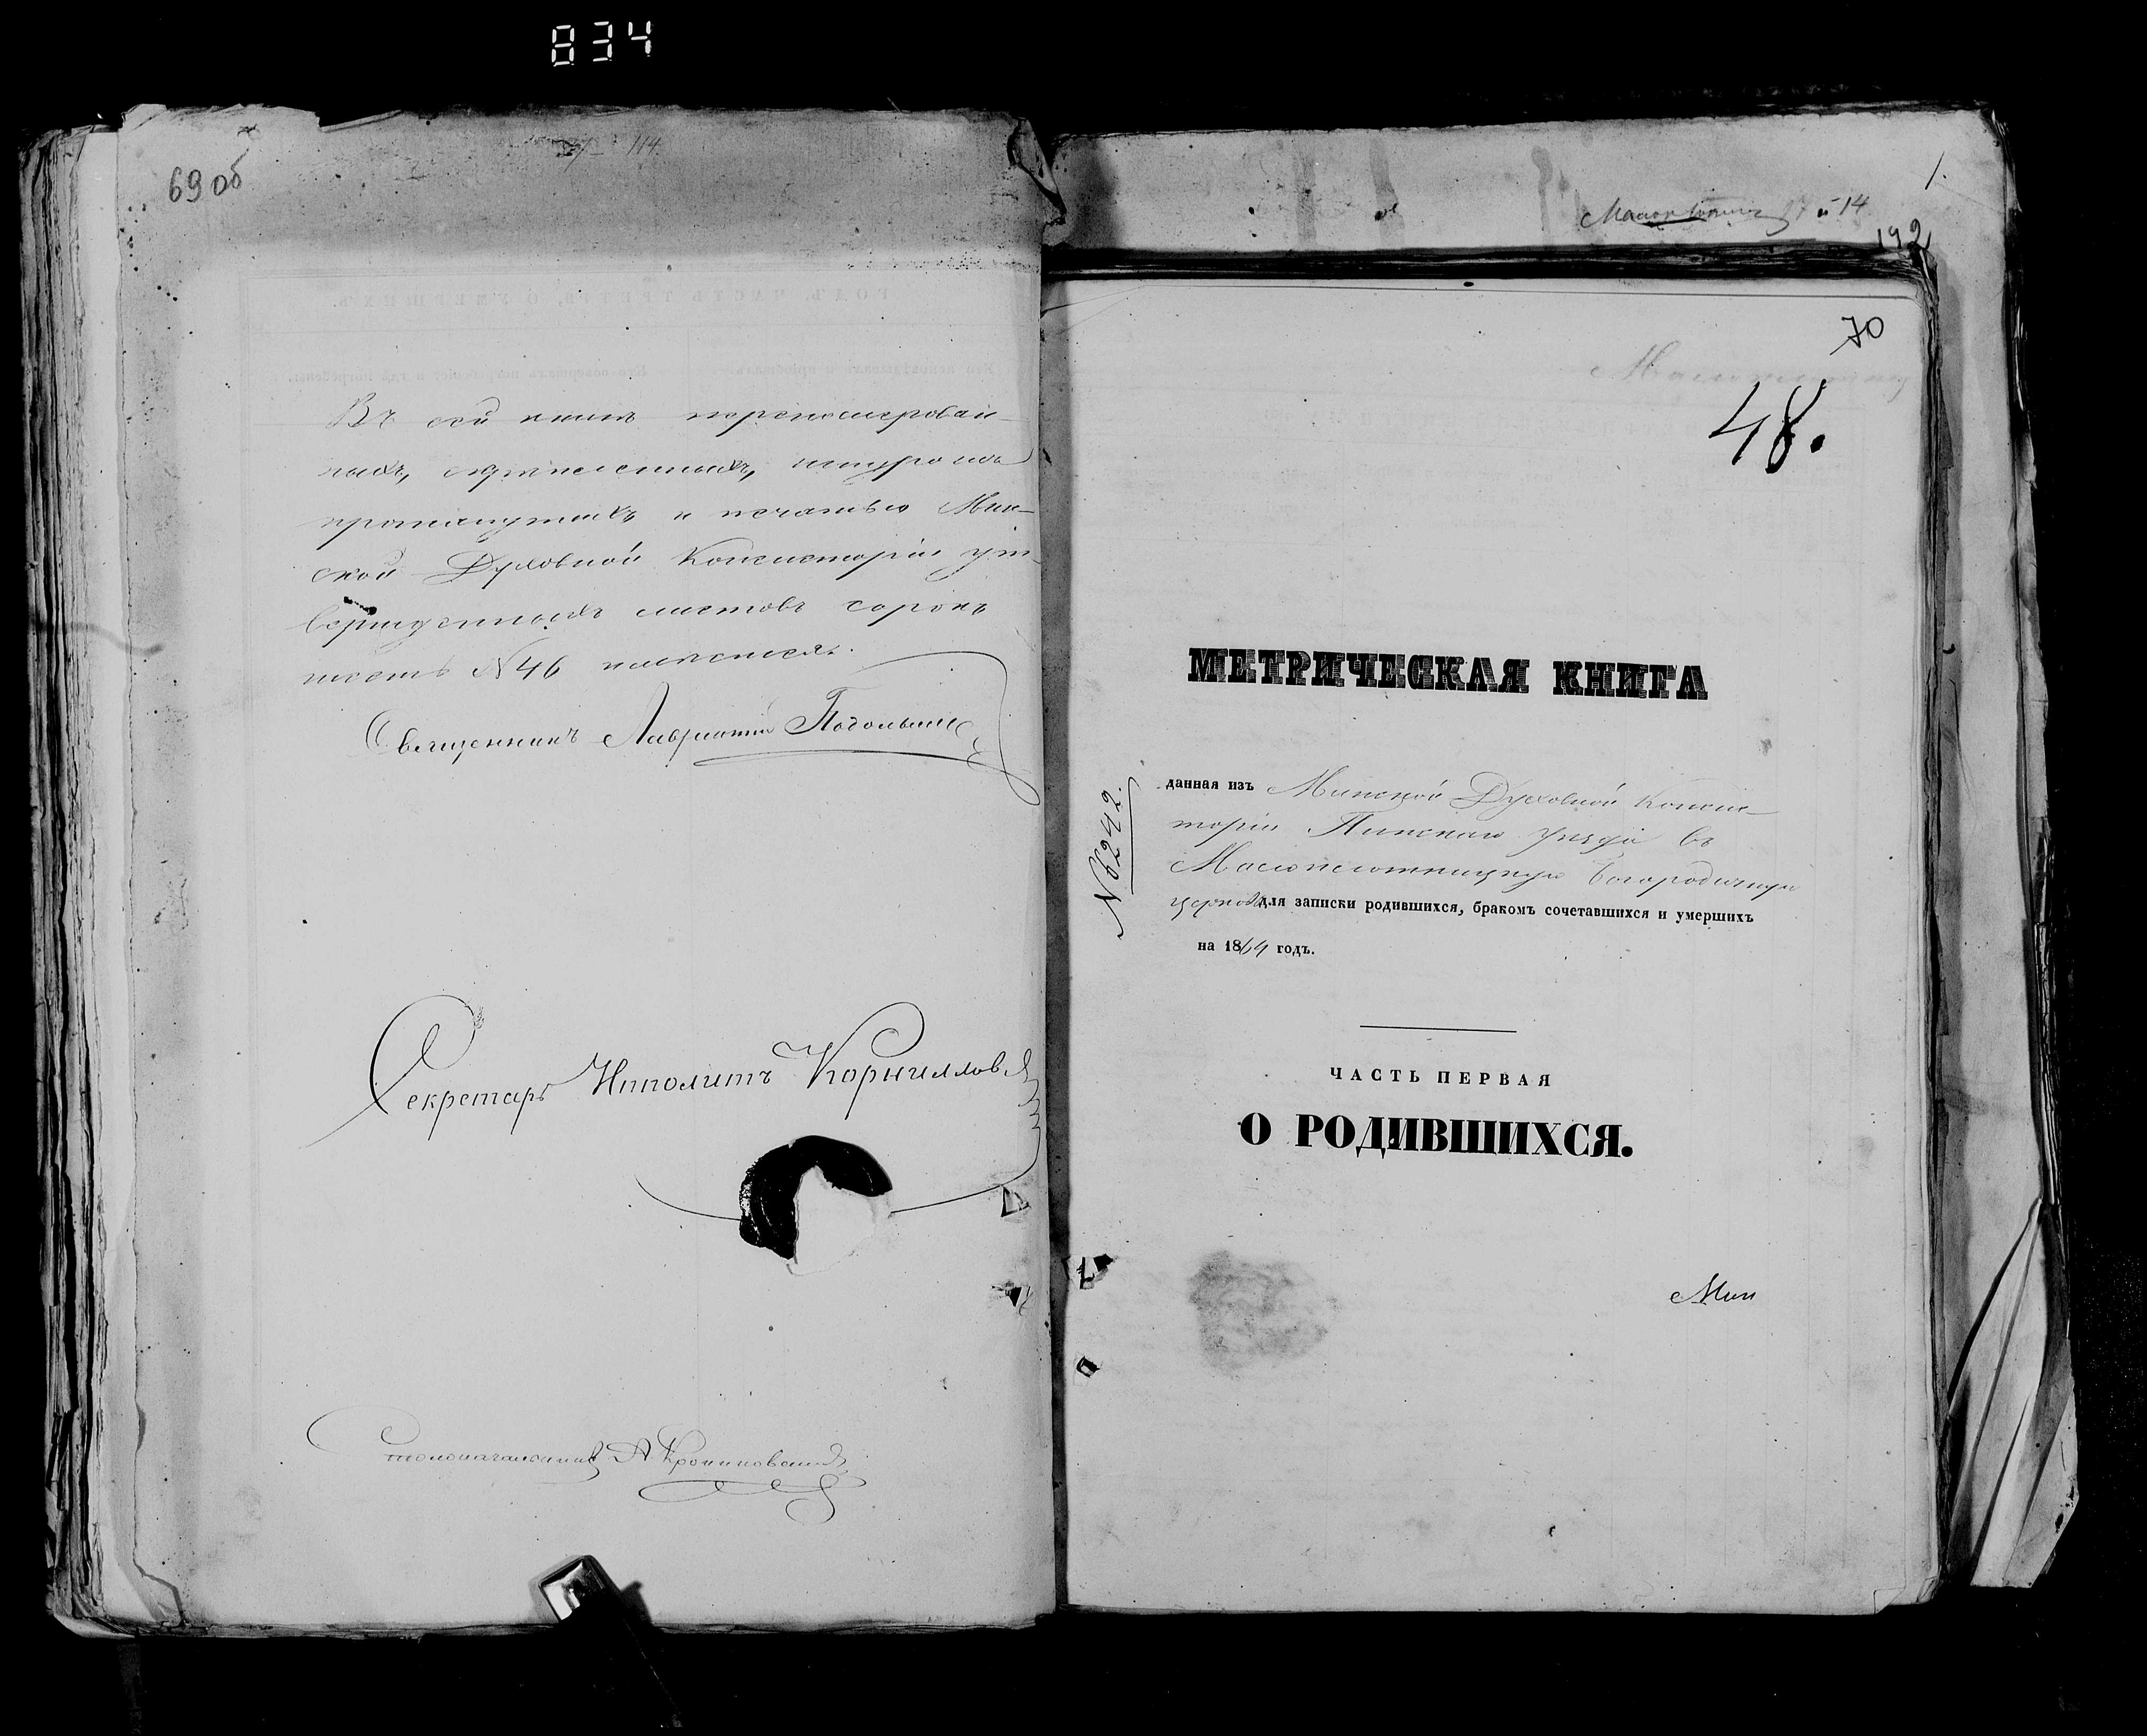 834
69 об
114
Въ сей книгѣ перенумерован-
ныхъ, скрѣпленныхъ, шнуромъ
протянутыхъ и печатью Мин-
ской Духовной Консисторіи ут-
вержденныхъ листовъ сорокъ
шесть №46 имѣется.
Священникъ Лаврентій
Секретарь Ипполитъ Корниллов
Столоначальникъ А
1.
14
192
70
48.
МЕТРИЧЕСКАЯ КНИГА
№6242.
данная изъ Минской Духовной Консис-
торіи Пинскаго уѣзда въ
Малоплотницкую Богородичную
церковь для записки родившихся, бракомъ сочетавшихся и умершихъ
на 1864 годъ.
ЧАСТЬ ПЕРВАЯ
О РОДИВШИХСЯ.
Мин